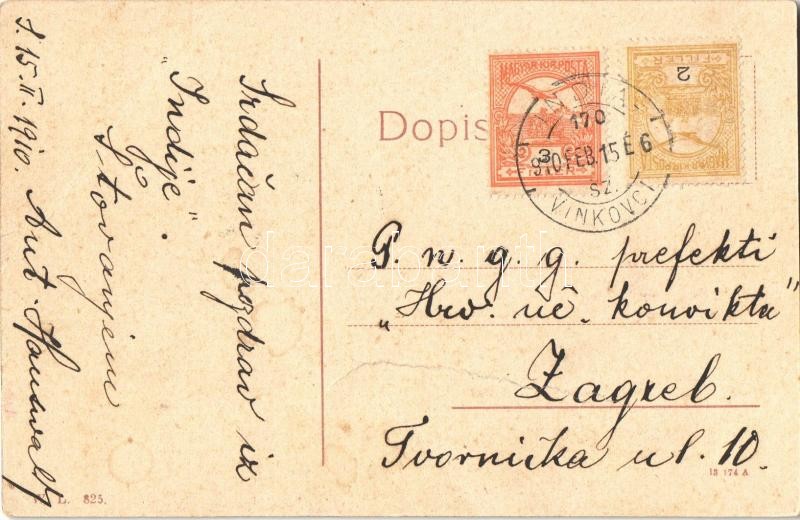 Srdačan pozdrav iz
"Indije".
S
štovanjem
Ant. Hauswald
S. 15.II. 1910.
L. 825.
Dopis
MAGYAR KIR. POSTA
3
FILLÉR
2
170
910 FEB. 15 É 6
SZ.
VINKOVCI
P. n. g. g. prefekti
"Hrv. uč. konvikta"
Zagreb.
Tvornička ul. 10.
13 174 A
darabanth